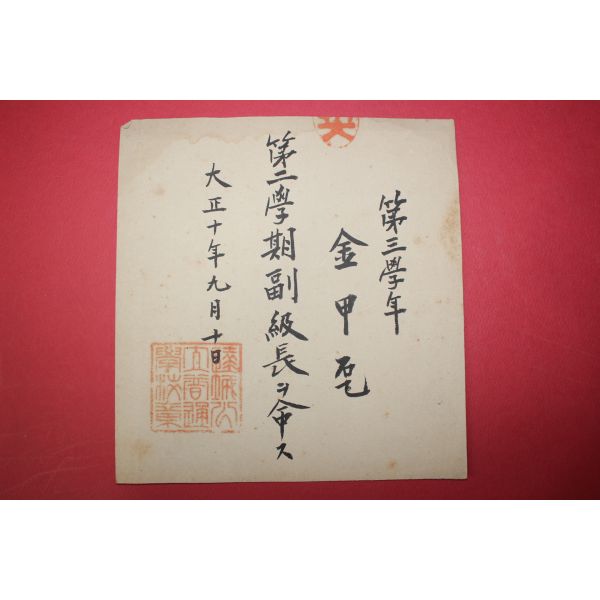 第三學年
金甲乭
第二學期副級長ヲ命ス
大正十年九月十日